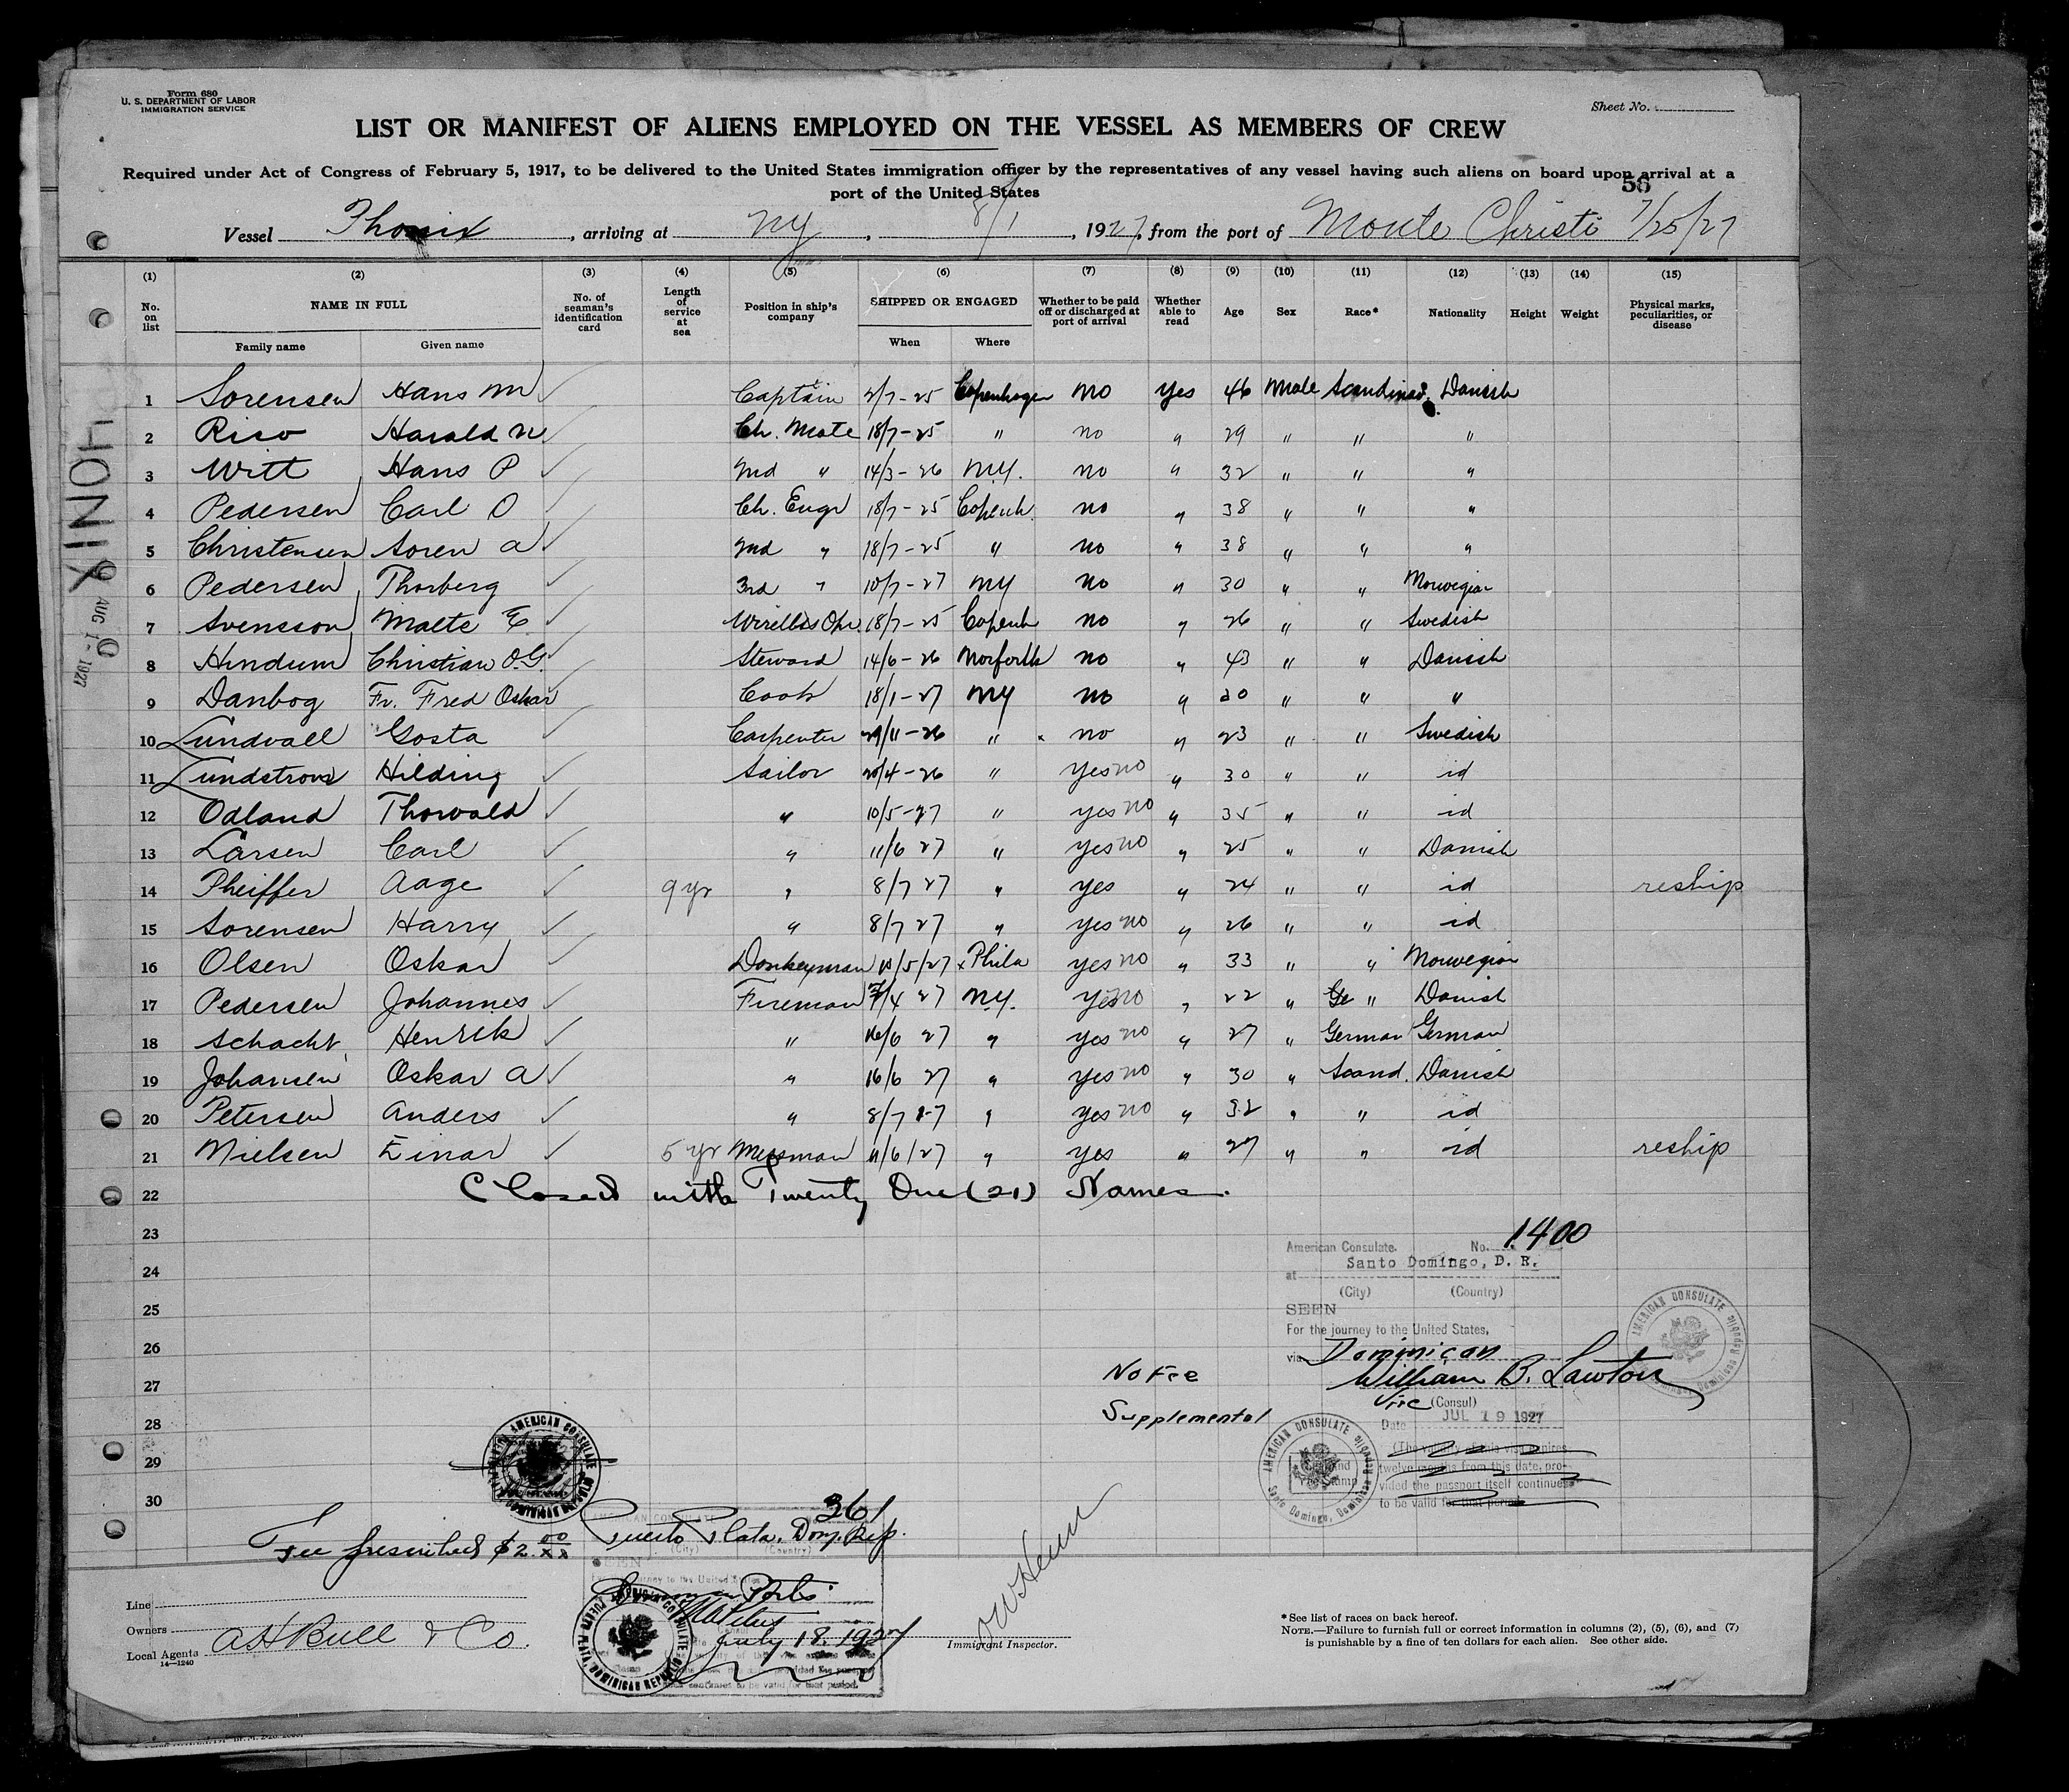 Form 680
U. S. DEPARTMENT OF LABOR
IMMIGRATION SERVICE
Sheet No.
LIST OR MANIFEST OF ALIENS EMPLOYED ON THE VESSEL AS MEMBERS OF CREW
Required under Act of Congress of February 5, 1917, to be delivered to the United States immigration officer by the representatives of any vessel having such aliens on board upon arrival at a
port of the United States
56
Vessel Phonix, arriving at NY, 8/1, 1927, from the port of Monte Christi 7/25/27
(1) (2) (3) (4) (5) (6) (7) (8) (9) (10) (11) (12) (13) (14) (15)
No. on list NAME IN FULL No. of seaman's identification card Length of service at sea Position in ship's company SHIPPED OR ENGAGED Whether to be paid off or discharged at port of arrival Whether able to read Age Sex Race* Nationality Height Weight Physical marks, peculiarities, or disease
Family name Given name When Where
1 Sorensen Hans M Captain 2/7-25 Copenhagen no yes 46 Male Scandinav. Danish
2 Riso Harald N Ch. Mate 18/7-25 " no " 29 " " "
3 Witt Hans P 2nd " 14/3-26 NY. no " 32 " " "
4 Pedersen Carl O Ch. Engr 18/7-25 Copenh. no " 38 " " "
5 Christensen Soren A 2nd " 18/7-25 " no " 38 " " "
6 Pedersen Thorberg 3rd " 10/7-27 NY no " 30 " " Norwegian
7 Svensson Malte E Wirelles Opr. 18/7-25 Copenh no " 26 " " Swedish
8 Hindum Christian O.G. Steward 14/6-26 Norforlk no " 43 " " Danish
9 Danbog Fr. Fred Oskar Cook 18/1-27 NY no " 20 " " "
10 Lundvall Gosta Carpenter 29/11-26 " no " 23 " " Swedish
11 Lundstrom Hilding Sailor 20/4-26 " yes no " 30 " " id
12 Odland Thorvald " 10/5-27 " yes no " 35 " " id
13 Larsen Carl " 11/6 27 " yes no " 25 " " Danish
14 Pheiffer Aage 9 yr " 8/7 27 " yes " 24 " " id reship
15 Sorensen Harry " 8/7 27 " yes no " 26 " " id
16 Olsen Oskar Donkeyman 10/5/27 Phila yes no " 33 " " Norwegian
17 Pedersen Johannes Fireman 7/4 27 N.Y. yes no " 22 " " Danish
18 Schacht Henrik " 16/6 27 " yes no " 27 " German German
19 Johansen Oskar A " 16/6 27 " yes no " 30 " Scand. Danish
20 Petersen Anders " 8/7 27 " yes no " 32 " " id
21 Nielsen Einar 5 yr Messman 11/6/27 " yes " 27 " " id reship
22 Closed with Twenty One (21) Names.
23
24
25
26
27
28
29
30
PHONIX
AUG 1 - 1927
American Consulate. No. 1400
at Santo Domingo, D. R.
(City) (Country)
SEEN
For the journey to the United States,
via Dominican
William B. Lawton
Vice (Consul)
Date JUL 19 1927
(The validity of this visa expires
twelve months from this date, pro-
vided the passport itself continues
to be valid for that period.
AMERICAN CONSULATE
Santo Domingo, Dominican Republic
No Fee
Supplemental
361
Puerto Plata, Dom. Rep.
(City) (Country)
SEEN
July 18. 1927
AMERICAN CONSULATE
PUERTO PLATA, DOMINICAN REPUBLIC
Fee prescribed $2.00/xx
Line
Owners
Local Agents A H Bull & Co.
14—1240
Immigrant Inspector.
*See list of races on back hereof.
NOTE.—Failure to furnish full or correct information in columns (2), (5), (6), and (7)
is punishable by a fine of ten dollars for each alien. See other side.